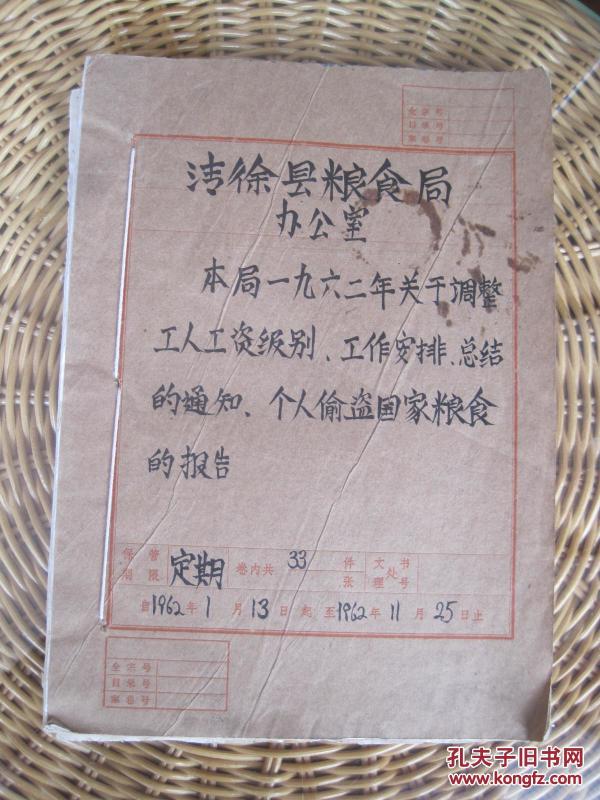 全宗号
目录号
案卷号
清徐县粮食局
办公室
本局一九六二年关于调整
工人工资级别、工作安排、总结
的通知、个人偷盗国家粮食
的报告
保管期限 定期 卷内共 33 件张 文书处理号
自1962年1月13日起至1962年11月25日止
全宗号
目录号
案卷号
孔夫子旧书网
www.kongfz.com